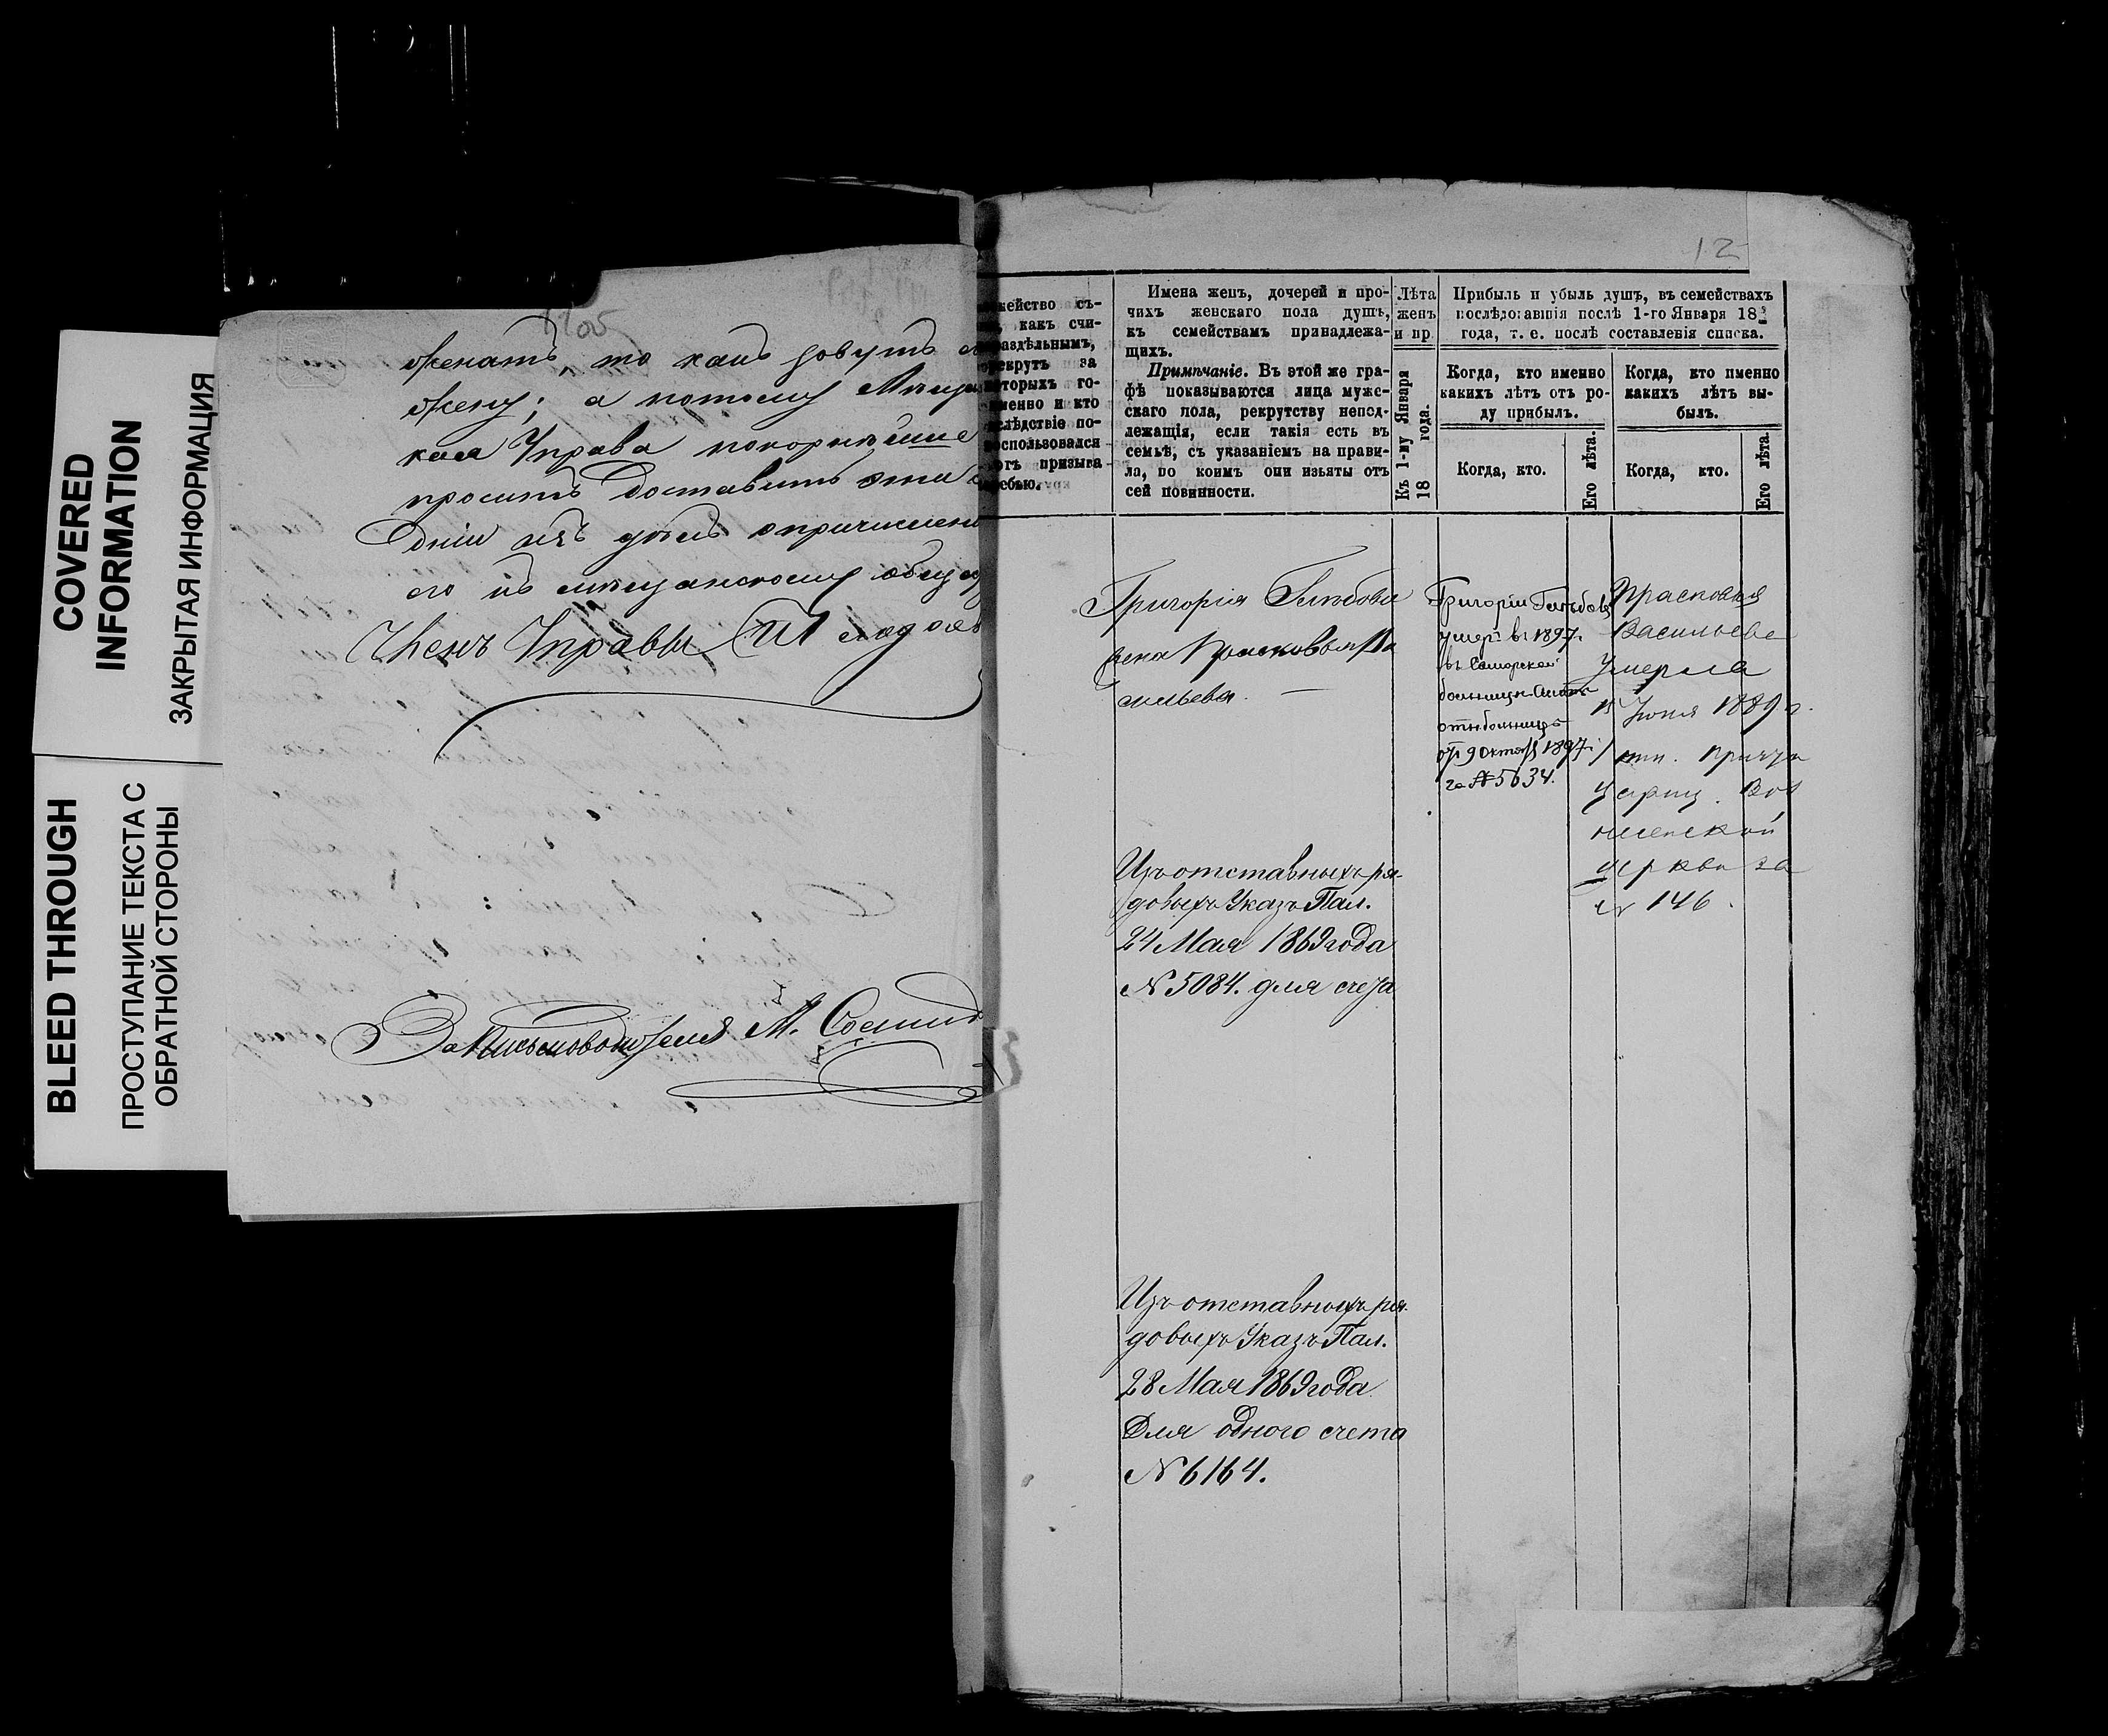 COVERED
INFORMATION
ЗАКРЫТАЯ ИНФОРМАЦИЯ
BLEED THROUGH
ПРОСТУПАНИЕ ТЕКСТА С
ОБРАТНОЙ СТОРОНЫ
женатъ, то какъ зовутъ
жену; а потому Мѣщан
кая Управа покорнѣйше
проситъ доставить эти
о причислен
его къ мѣщанскому общес
Членъ Управы
За Письмоводителя М.
12
мейство съ-
, какъ счи-
раздѣльнымъ,
рекрутъ за
которыхъ го-
именно и кто
слѣдствіе по-
воспользовался
отъ призыва
ребью.
Имена женъ, дочерей и про-
чихъ женскаго пола душъ,
къ семействамъ принадлежа-
щихъ.
Примѣчаніе. Въ этой же гра-
фѣ показываются лица муж-
скаго пола, рекрутству непод-
лежащія, если такія есть въ
семьѣ, съ указаніемъ на прави-
ла, по коимъ они изъяты отъ
сей повинности.
Лѣта
женъ
и пр
Къ 1-му Января
18 года.
Прибыль и убыль душъ, въ семействахъ
послѣдовавшія послѣ 1-го Января 18
года, т. е. послѣ составленія списка.
Когда, кто именно
какихъ лѣтъ отъ ро-
ду прибылъ.
Когда, кто именно
какихъ лѣтъ вы-
былъ.
Когда, кто.
Его лѣта.
Когда, кто.
Его лѣта.
Григорія Глѣбова
жена Прасковья Ва
сильева.
Григорій Глѣбовъ
умеръ въ 1897 г.
въ Самарской
больницѣ
от. больницы
отъ 9 Октяб 1897 г.
за № 5634.
Прасковья
Васильева
умерла
15 Іюня 1889 г.
церкви за
№ 146.
Изъ отставныхъ ря-
довыхъ Указъ Пал.
24 Мая 1869 года
№ 5084. для счета
Изъ отставныхъ ря-
довыхъ Указъ Пал.
28 Мая 1869 года
Для одного счета
№ 6164.